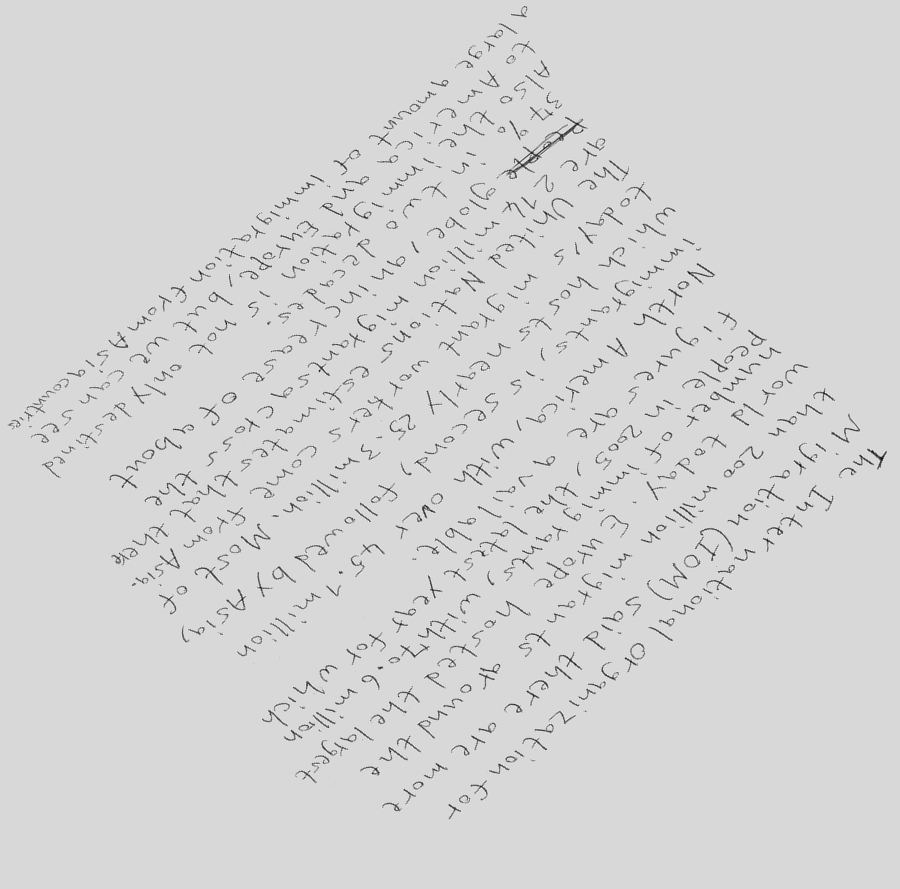 The International Organization for
Migration (IOM) said there are more
than 200 million migrants around the
world today. Europe hosted the largest
number of immigrants, with 70.6 million
people in 2005, the latest year for which
figures are available.
North America, with over 45.1 million
immigrants, is second, followed by Asia,
which hosts nearly 25.3 million. Most of
today's migrant workers come from Asia.
The United Nations estimates that there
are 214 million migrants across the
globe, an increase of about
34% in two decades.
Also the immigration is not only destined
to America and Europe, but we can see
a large amount of immigration from Asia countrie